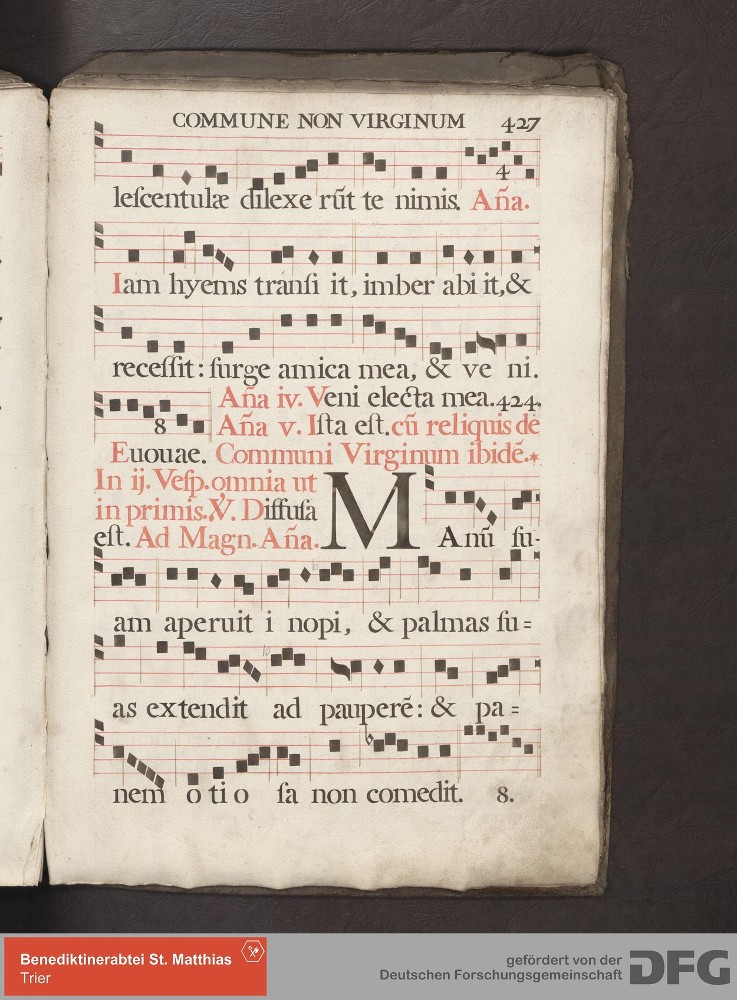 COMMUNE NON VIRGINUM 427
4
leſcentulæ dilexe rũt te nimis. Aña.
Iam hyems tranſi it, imber abi it, &
receſſit: ſurge amica mea, & ve ni.
Aña iv. Veni electa mea. 424.
8 Aña v. Iſta eſt. cũ reliquis de
Euouae. Communi Virginum ibidẽ.*
In ij. Veſp. omnia ut
in primis. V. Diffuſa
eſt. Ad Magn. Aña. M Anũ ſu-
am aperuit i nopi, & palmas ſu=
as extendit ad pauperẽ: & pa=
nem o ti o ſa non comedit. 8.
Benediktinerabtei St. Matthias
Trier
gefördert von der
Deutschen Forschungsgemeinschaft
DFG